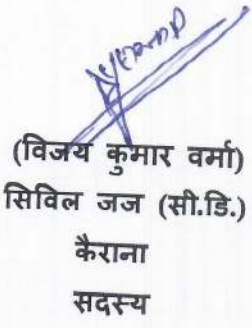 (विजय कुमार वर्मा)
सिविल जज (सी.डि.)
कैराना
सदस्य